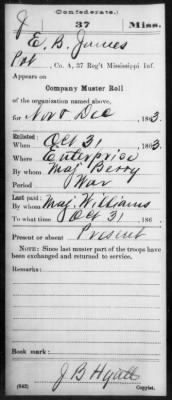 (Confederate.)
J 37 Miss.
E. B. James
Pvt, Co. A, 37 Reg't Mississippi Inf.
Appears on
Company Muster Roll
of the organization named above,
for Nov & Dec, 1863.
Enlisted:
When Oct 31, 1863.
Where Enterprise
By whom Maj Berry
Period War
Last paid:
By whom Maj. Williams
To what time Oct 31, 186
Present or absent Present
NOTE: Since last muster part of the troops have
been exchanged and returned to service.
Remarks:
Book mark:
J B Hyatt
(642) Copyist.